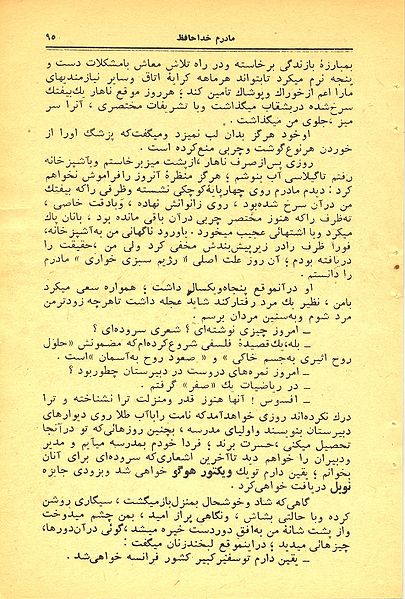 مادرم خداحافظ
۹۵
بمبارزهٔ بازندگی برخاسته ودر راه تلاش معاش بامشکلات دست و
پنجه نرم میکرد تابتواند هرماهه کرایهٔ اتاق وسایر نیازمندیهای
مارا اعم ازخوراك وپوشاك تامین کند؛ هرروز موقع ناهار یك‌بیفتك
سرخ‌شده دربشقاب میگذاشت وبا تشریفات مختصری ، آنرا سر
میز ،جلوی من میگذاشت .
اوخود هرگز بدان لب نمیزد ومیگفت‌که پزشگ اورا از
خوردن هرنوع‌گوشت وچربی منع‌کرده است .
روزی پس‌ازصرف ناهار ،ازپشت میزبرخاستم وبآشپزخانه
رفتم تاگیلاسی آب بنوشم ؛ هرگز منظرهٔ آنروز رافراموش نخواهم
کرد : دیدم مادرم روی چهارپایهٔ‌کوچکی نشسته وظرفی راکه بیفتك
من درآن سرخ شده‌بود ، روی زانوانش نهاده ، وبادقت خاصی ،
ته‌ظرف راکه هنوز مختصر چربی درآن باقی مانده بود ، بانان پاك
میکرد وبا اشتهائی عجیب میخورد . باورود ناگهانی من به‌آشپزخانه،
فوراً ظرف رادر زیرپیش‌بندش مخفی کرد ولی من ،حقیقت را
دریافته بودم ؛ آن روز علت اصلی « رژیم سبزی خواری » مادرم
را دانستم .
او درآنموقع پنجاه‌ویکسال داشت ؛ همواره سعی میکرد
بامن ، نظیر یك مرد رفتارکند شاید عجله داشت تاهرچه زودترمن
مرد شوم وبه‌سنین مردان برسم .
ــ امروز چیزی نوشته‌ای ؟ شعری سروده‌ای ؟
ــ بله،یك‌قصیدهٔ فلسفی شروع‌کرده‌ام‌که مضمونش «حلول
روح اثیری به‌جسم خاکی » و « صعود روح به‌آسمان »است .
ــ امروز نمره‌های دروست در دبیرستان چطوربود ؟
ــ در ریاضیات یك «صفر» گرفتم .
ــ افسوس ! آنها هنوز قدر ومنزلت ترا نشناخته و ترا
درك نکرده‌اند روزی خواهدآمدکه نامت راباآب طلا روی دیوارهای
دبیرستان بنویسند واولیای مدرسه ، بچنین روزهائی‌که تو درآنجا
تحصیل میکنی ،حسرت برند ؛ فردا خودم بمدرسه میآیم و مدیر
ودبیران را خواهم دید تاآخرین اشعاری‌که سروده‌ای برای آنان
بخوانم ؛ یقین دارم تویك ویکتور هوگو خواهی شد وبزودی جایزه
نوبل دریافت خواهی‌کرد .
گاهی‌که شاد وخوشحال بمنزل‌بازمیگشت ، سیگاری روشن
کرده وبا حالتی بشاش ، ونگاهی پراز امید ، بمن چشم میدوخت
وازپشت شانهٔ من به‌افق دوردست خیره میشد،گوئی درآن‌دورها،
چیزهائی میدید ؛ دراینموقع لبخندزنان میگفت :
ــ یقین دارم توسفیرکبیر کشور فرانسه خواهی‌شد .